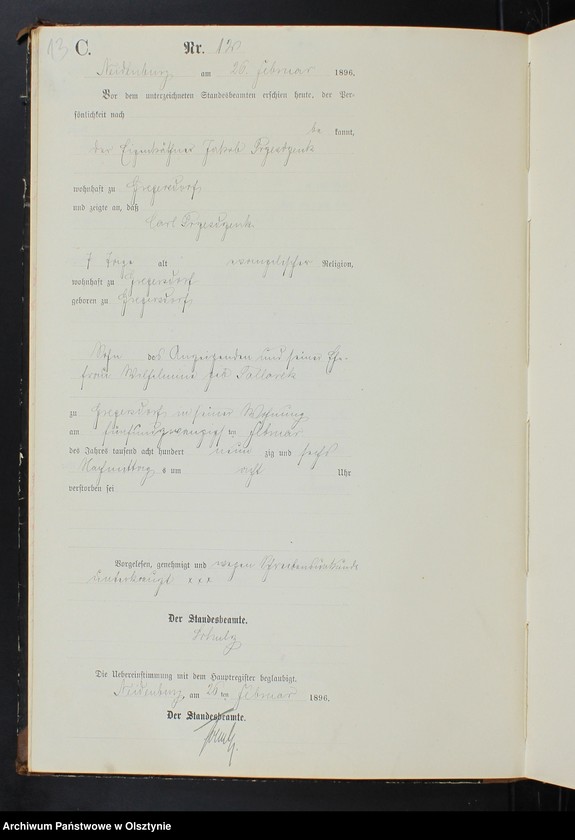 13 C. Nr. 13
Neidenburg, am 26. Februar 1896.
Vor dem unterzeichneten Standesbeamten erschien heute, der Per-
sönlichkeit nach
be kannt,
der Eigenkäthner Jakob
wohnhaft zu Gregersdorf,
und zeigte an, daß
Carl
7 Tage alt evangelischer Religion,
wohnhaft zu Gregersdorf
geboren zu Gregersdorf,
Sohn des Anzeigenden und seiner Ehe-
frau Wilhelmine geb.
zu Gregersdorf in seiner Wohnung
am fünfundzwanzigsten Februar
des Jahres tausend acht hundert neun zig und sechs
Nachmittags um acht Uhr
verstorben sei
Vorgelesen, genehmigt und wegen Schreibensunkunde
unterkreuzt x x x
Der Standesbeamte.
Die Uebereinstimmung mit dem Hauptregister beglaubigt.
Neidenburg, am 26 ten Februar 1896.
Der Standesbeamte.
Archiwum Państwowe w Olsztynie